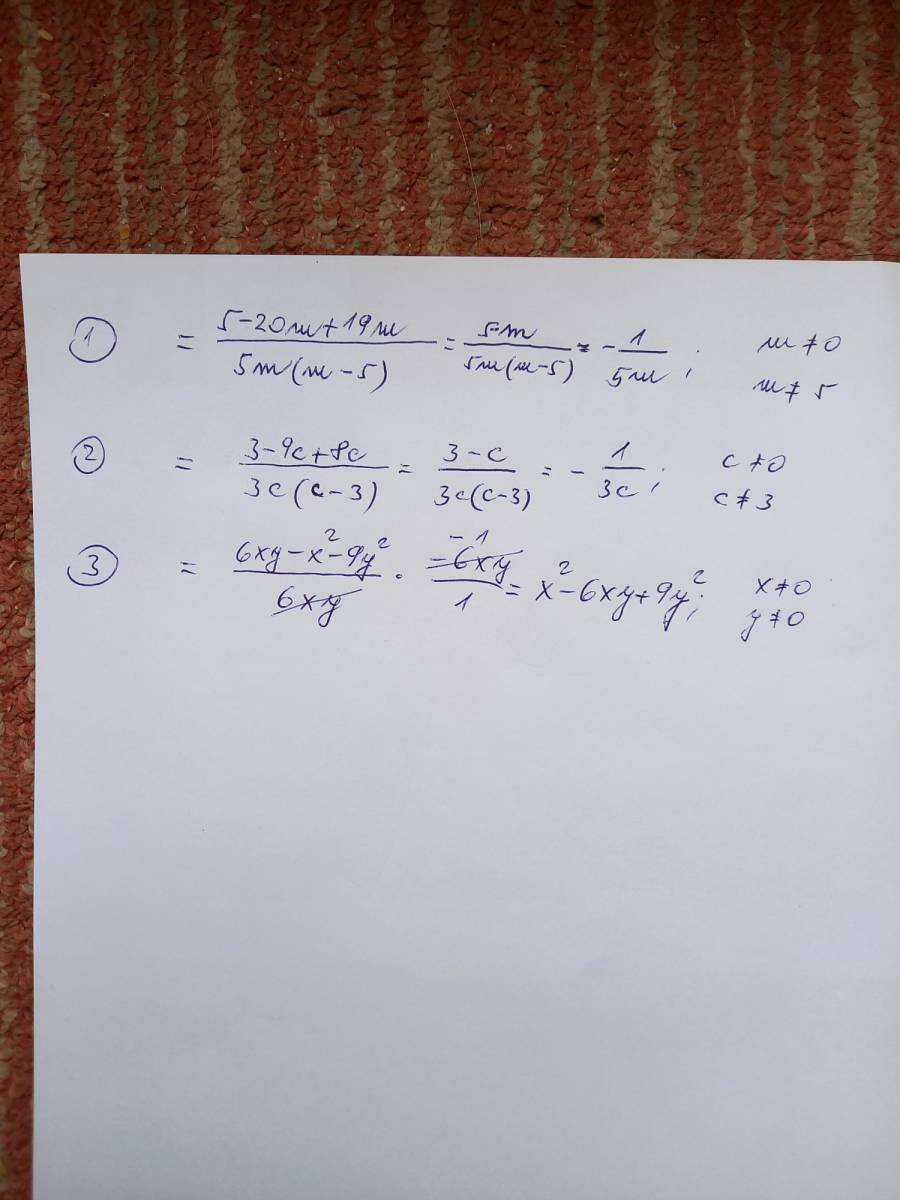 ① = (5-20m+19m)/(5m(m-5)) = (5-m)/(5m(m-5)) = -1/(5m); m≠0
m≠5
② = (3-9c+8c)/(3c(c-3)) = (3-c)/(3c(c-3)) = -1/(3c); c≠0
c≠3
③ = (6xy-x²-9y²)/(6xy) · (-6xy)/1 = x²-6xy+9y²; x≠0
-1
y≠0